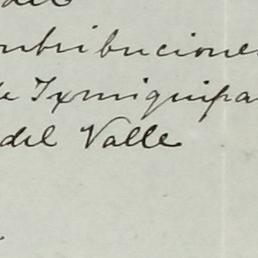 del
ontribucione
e Ixmiquipa
del Valle